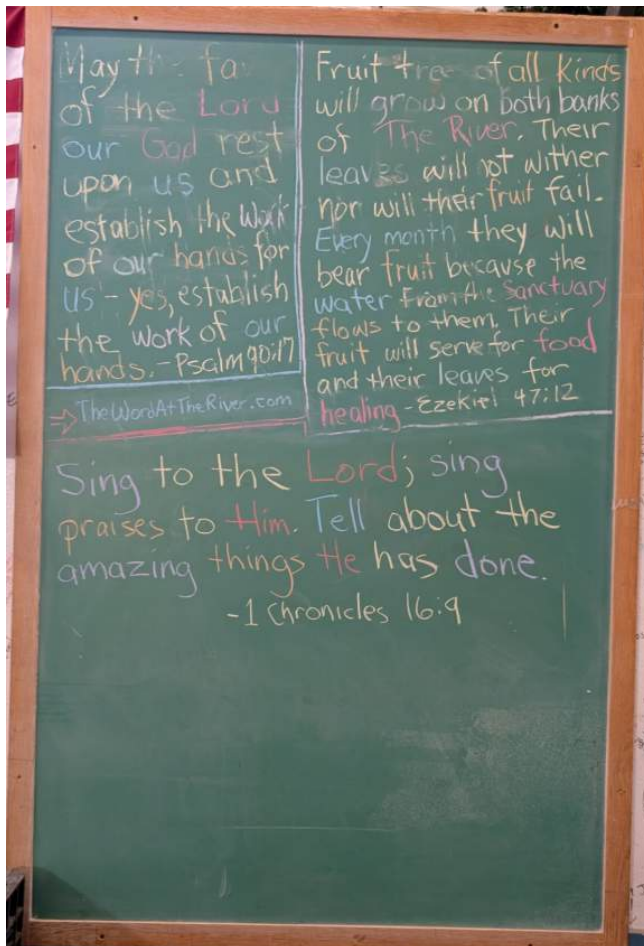 May the fa
of the Lord
our God rest
upon us and
establish the work
of our hands for
us - yes, establish
the work of our
hands. - Psalm 90:17
TheWordAtTheRiver.com
Fruit tre of all Kinds
will grow on both banks
of The River. Their
leaves will not wither
nor will their fruit fail.
Every month they will
bear fruit because the
water from the Sanctuary
flows to them. Their
fruit will serve for food
and their leaves for
healing - Ezekiel 47:12
Sing to the Lord; sing
praises to Him. Tell about the
amazing things He has done.
-1 Chronicles 16:9